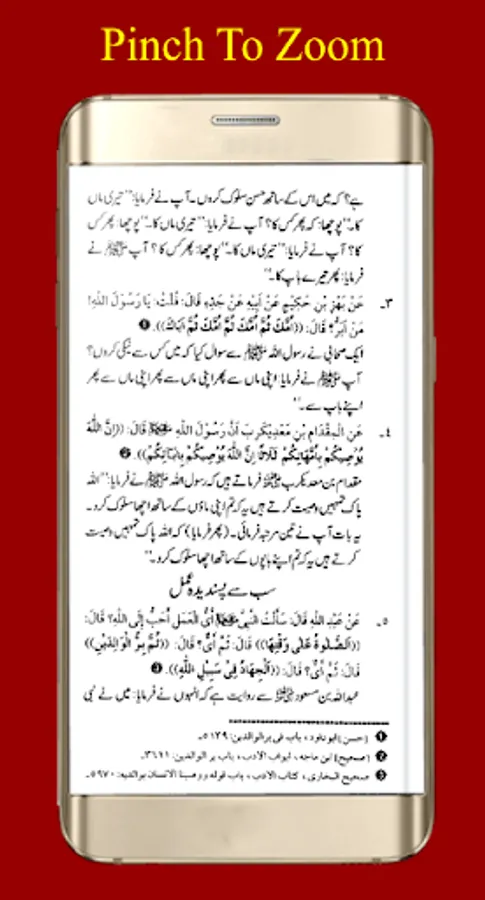 Pinch To Zoom
ہے؟ کہ میں اس کے ساتھ حسن سلوک کروں۔ آپ نے فرمایا: ’’تیری ماں
کا۔‘‘ پوچھا: کہ پھر کس کا؟ آپ نے فرمایا: ’’تیری ماں کا۔‘‘ پوچھا: پھر کس
کا؟ آپ نے فرمایا: ’’تیری ماں کا۔‘‘ پوچھا: پھر کس کا؟ آپ ﷺ نے
فرمایا: پھر تیرے باپ کا۔‘‘
۳۔ عَنْ بَهْزِ بْنِ حَكِيْمٍ عَنْ أَبِيْهِ عَنْ جَدِّهِ قَالَ: قُلْتُ: يَا رَسُوْلَ اللهِ!
مَنْ أَبَرُّ؟ قَالَ: ((أُمَّكَ ثُمَّ أُمَّكَ ثُمَّ أُمَّكَ ثُمَّ أَبَاكَ)). ❶
ایک صحابی نے رسول اللہ ﷺ سے سوال کیا کہ میں کس سے نیکی کروں؟
آپ ﷺ نے فرمایا: اپنی ماں سے پھر اپنی ماں سے پھر اپنی ماں سے پھر
اپنے باپ سے۔‘‘
٤۔ عَنِ الْمِقْدَامِ بْنِ مَعْدِيْكَرِبَ أَنَّ رَسُوْلَ اللهِ ﷺ قَالَ: ((إِنَّ اللهَ
يُوْصِيْكُمْ بِأُمَّهَاتِكُمْ ثَلَاثًا إِنَّ اللهَ يُوْصِيْكُمْ بِآبَائِكُمْ)). ❷
مقدام بن معدیکرب فرماتے ہیں کہ رسول اللہ ﷺ نے فرمایا: ’’اللہ
پاک تمہیں وصیت کرتے ہیں یہ کہ تم اپنی ماؤں کے ساتھ اچھا سلوک کرو۔
یہ بات آپ نے تین مرتبہ فرمائی۔ (پھر فرمایا) کہ اللہ پاک تمہیں وصیت
کرتے ہیں یہ کہ تم اپنے باپوں کے ساتھ اچھا سلوک کرو۔‘‘
سب سے پسندیدہ عمل
٥۔ عَنْ عَبْدِ اللهِ قَالَ: سَأَلْتُ النَّبِيَّ ﷺ أَيُّ الْعَمَلِ أَحَبُّ إِلَى اللهِ؟ قَالَ:
((الصَّلٰوةُ عَلٰى وَقْتِهَا)) قَالَ: ثُمَّ أَيٌّ؟ قَالَ: ((ثُمَّ بِرُّ الْوَالِدَيْنِ))
قَالَ: ثُمَّ أَيٌّ؟ قَالَ: ((الْجِهَادُ فِيْ سَبِيْلِ اللهِ)). ❸
عبداللہ بن مسعود سے روایت ہے کہ انہوں نے فرمایا: میں نے نبی
❶ (حسن) ابو داود، باب فی بر الوالدین: ٥١٣٩۔
❷ (صحیح) ابن ماجه، ابواب الأدب، باب بر الوالدین: ٣٦٦١۔
❸ صحیح البخاری، کتاب الأدب، باب قوله ووصینا الانسان بوالدیه: ٥٩٧٠۔